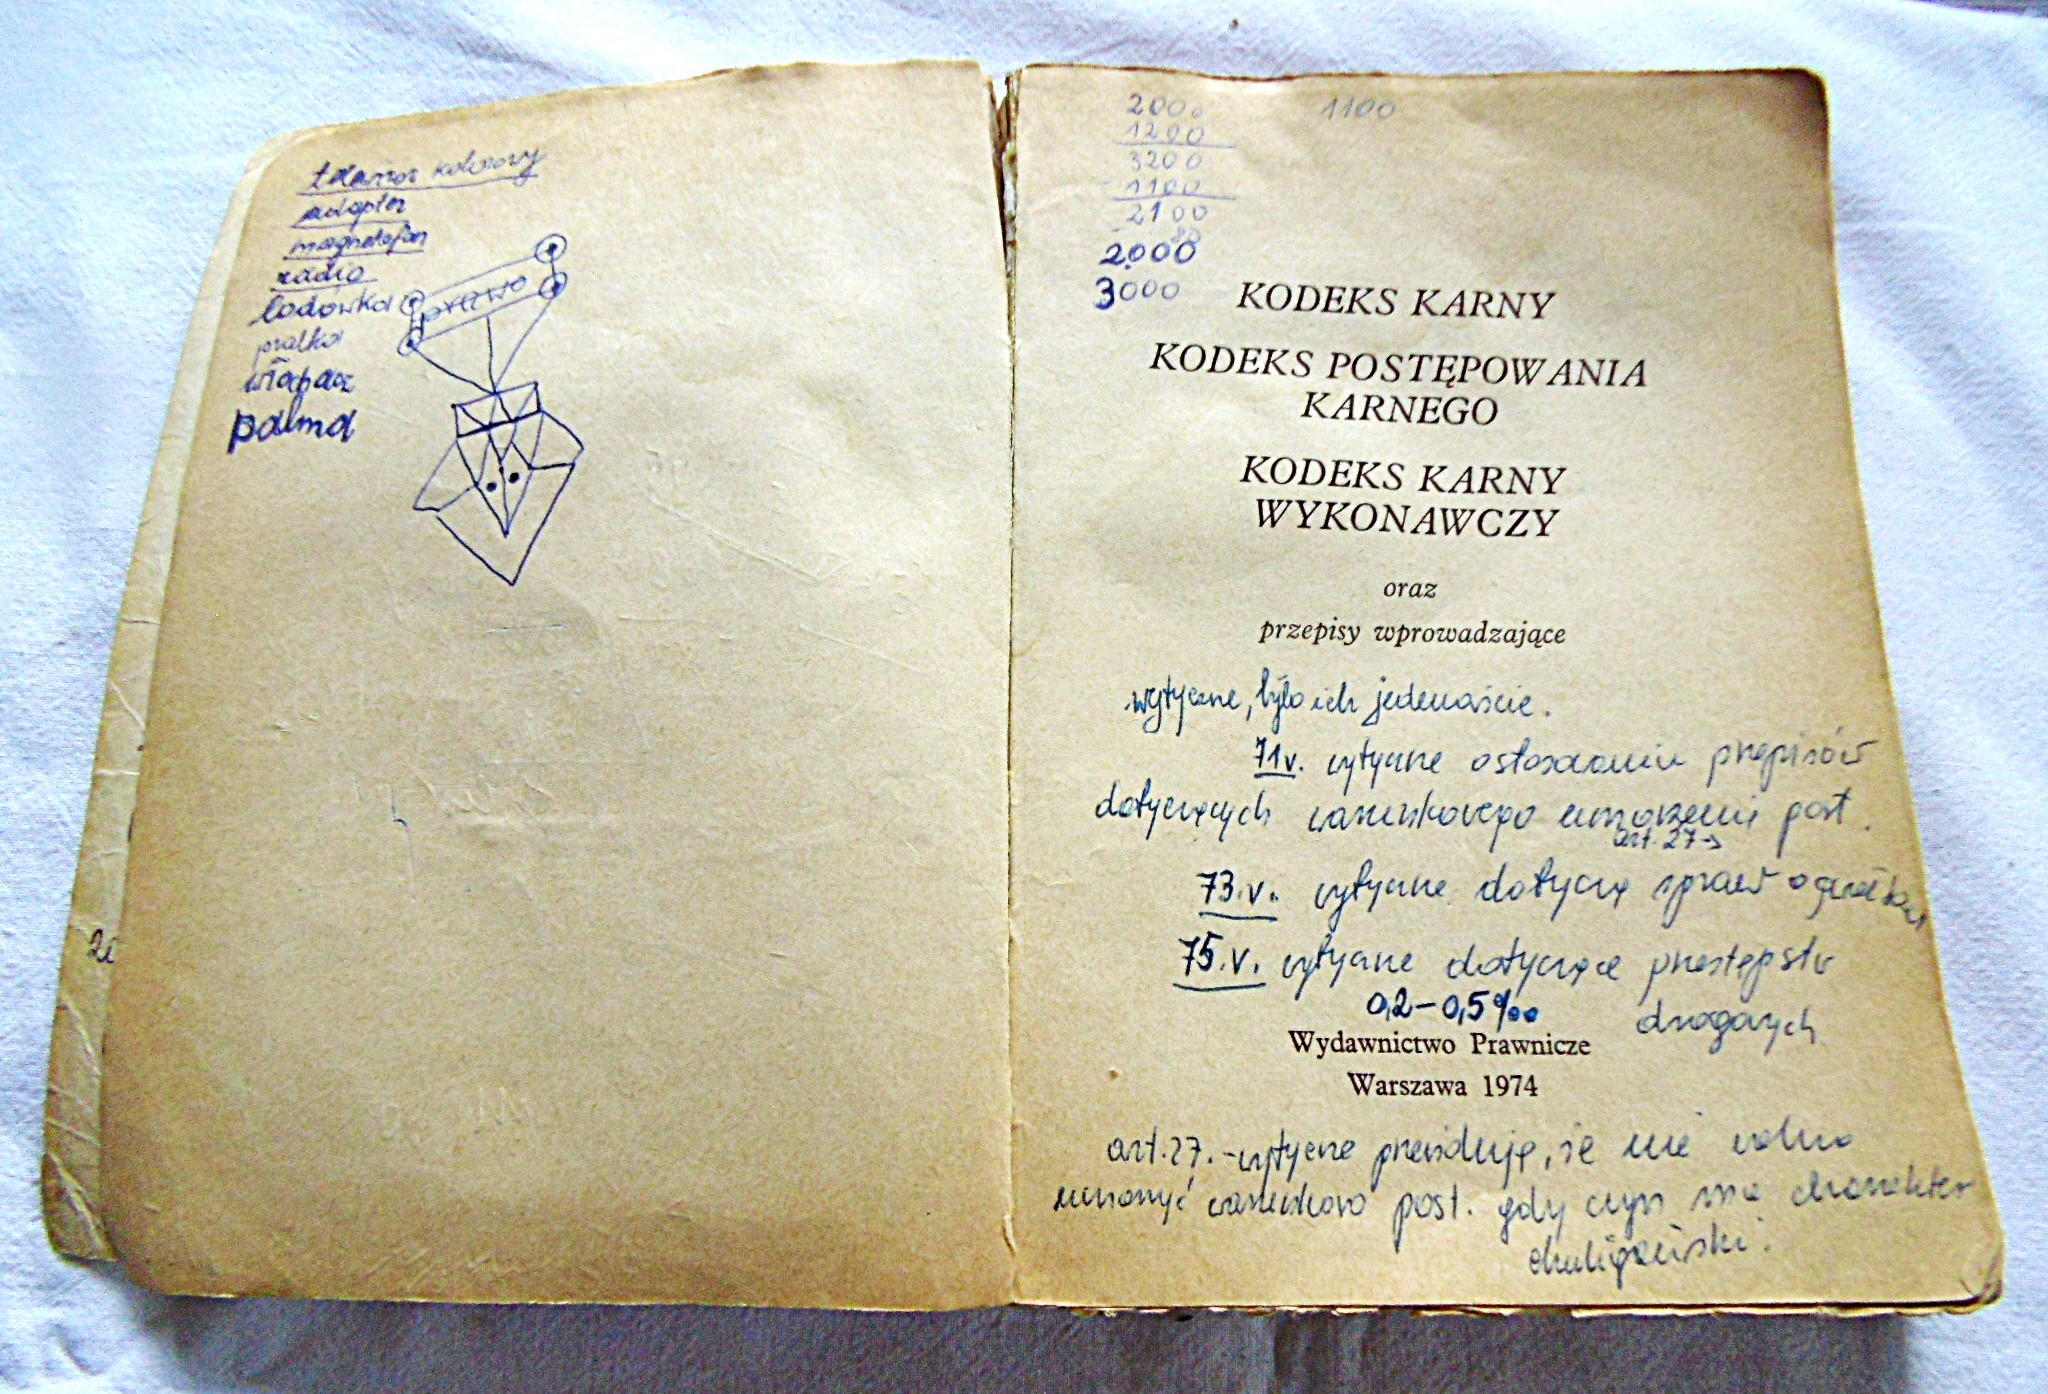 telewizor kolorowy
adapter
magnetofon
radio
lodówka
pralka
włapacz
palma
prawo
20
2000
1200
3200
1100
2100
80
2000
3000
1100
KODEKS KARNY
KODEKS POSTĘPOWANIA
KARNEGO
KODEKS KARNY
WYKONAWCZY
oraz
przepisy wprowadzające
wytyczne, było ich jedenaście.
71v. wytyczne o stosowaniu przepisów
dotyczących warunkowego umorzenia post.
art. 27→
73.v. wytyczne dotyczą spraw o
75.v. wytyczne dotyczące przestępstw
0,2-0,5‰ drogowych
Wydawnictwo Prawnicze
Warszawa 1974
art.27.-wytyczne przewidują, że nie wolno
umorzyć warunkowo post. gdy czyn ma charakter
chuligański.